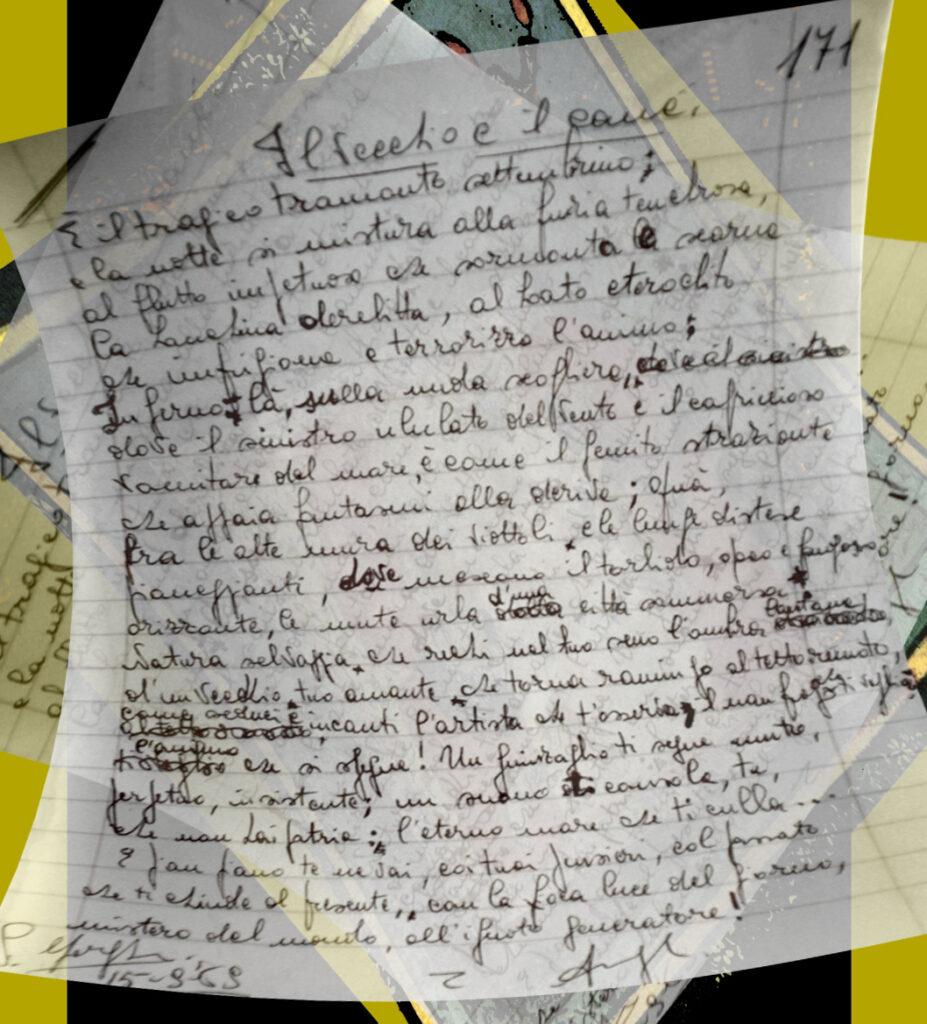 171
Il Vecchio e il cane.
È il tragico tramonto settembrino;
e la notte si mistura alla furia tenebrosa,
al flutto impetuoso che sormonta e scarna
la banchina derelitta, al boato eteroclito
che infrigona e terrorizza l'animo;
Infermo là, sulla nuda scogliera,
dove il sinistro ululato del vento e il capriccioso
vomitare del mare, è come il gemito straziante
che appaia fantasmi alla deriva; qua,
fra le alte mura dei viottoli, e le lunghe distese
pianeggianti, dove nascono il torbido, opaco
orizzonte, la mente urla d'una città sommersa.
Natura selvaggia, che rechi nel tuo seno l'ombra lontana
d'un vecchio tuo amante, che torna ramingo al tetto remoto,
come seduci e incanti l'artista che t'osserva,
l'animo che si spegne! Un guinzaglio ti segue
perpetuo, insistente; un suono consola, te,
che non hai patria; l'eterno mare che ti culla...
E pian piano te ne vai, coi tuoi pensieri, col passato
che ti chiude al presente, con la fioca luce del giorno,
mistero del mondo, all'ignoto generatore!
15-9-69